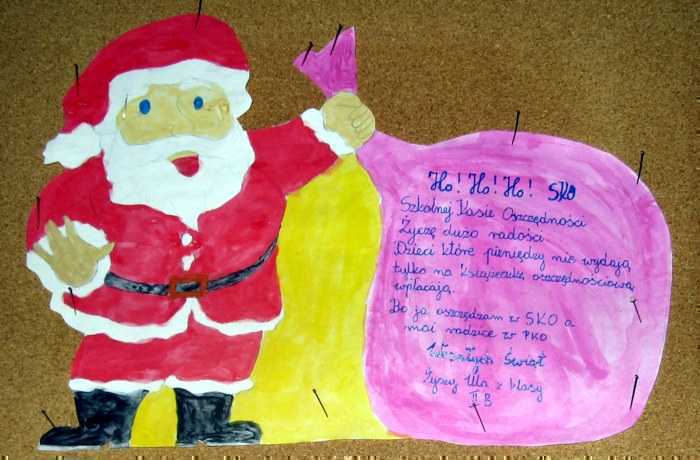 Ho! Ho! Ho! SKO
Szkolnej Kasie Oszczędności
Życzę dużo radości
Dzieci które pieniędzy nie wydają
tylko na książeczkę oszczędnościową
wpłacają.
Bo ja oszczędzam w SKO a
moi rodzice w PKO
Wesołych Świąt
Życzy Ula z klasy
II B